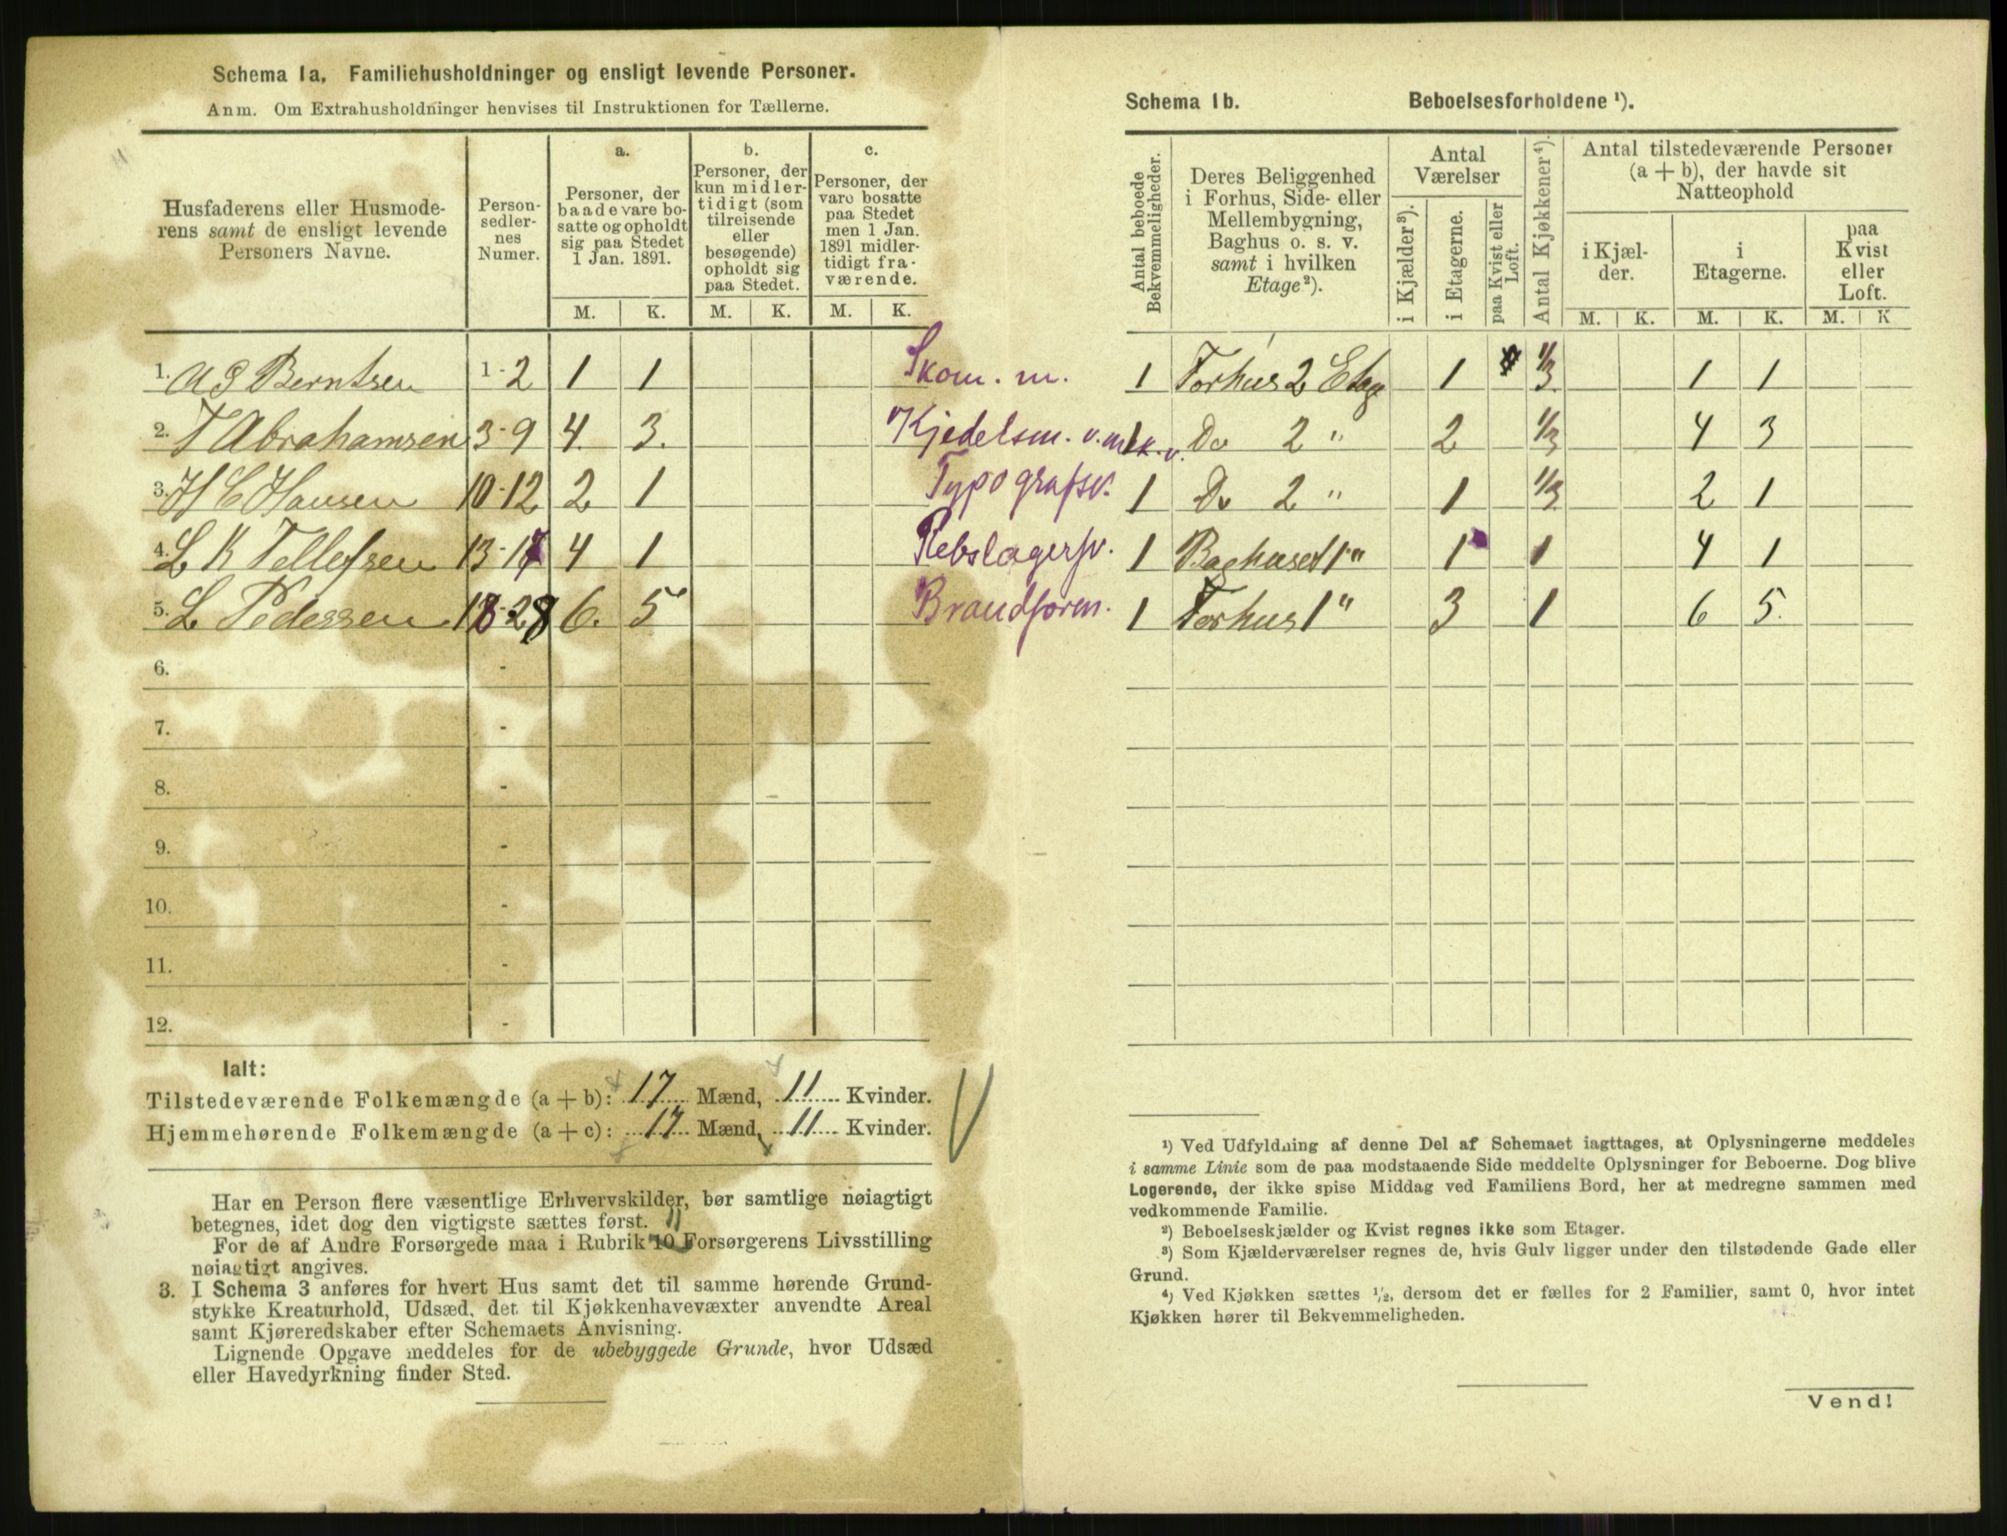 Schema 1a. Familiehusholdninger og ensligt levende Personer.
Anm. Om Extrahusholdninger henvises til Instruktionen for Tællerne.
Husfaderens eller Husmode-
rens samt de ensligt levende
Personers Navne.
Person-
sedler-
nes
Numer.
a.
Personer, der
baade vare bo-
satte og opholdt
sig paa Stedet
1 Jan. 1891.
b.
Personer, der
kun midler-
tidigt (som
tilreisende
eller
besøgende)
opholdt sig
paa Stedet.
c.
Personer, der
vare bosatte
paa Stedet
men 1 Jan.
1891 midler-
tidigt fra-
værende.
M. K. M. K. M. K.
1. A G Berntsen 1-2 1 1 Skom. m.
2. T Abrahamsen 3-9 4. 3. Kjedelsm. v. mek. v.
3. H C Hansen 10-12 2 1 Typografsv.
4. L K Tellefsen 13-17 4 1 Rebslagersv.
5. L Pedersen 18-28 6. 5 Brandform.
6. -
7. -
8. -
9. -
10. -
11. -
12. -
Ialt:
Tilstedeværende Folkemængde (a + b): 17 Mænd, 11 Kvinder.
Hjemmehørende Folkemængde (a + c): 17 Mænd, 11 Kvinder.
Har en Person flere væsentlige Erhvervskilder, bør samtlige nøiagtigt
betegnes, idet dog den vigtigste sættes først.
11
For de af Andre Forsørgede maa i Rubrik 10 Forsørgerens Livsstilling
nøiagtigt angives.
3. I Schema 3 anføres for hvert Hus samt det til samme hørende Grund-
stykke Kreaturhold, Udsæd, det til Kjøkkenhavevæxter anvendte Areal
samt Kjøreredskaber efter Schemaets Anvisning.
Lignende Opgave meddeles for de ubebyggede Grunde, hvor Udsæd
eller Havedyrkning finder Sted.
Schema 1b. Beboelsesforholdene ¹).
Antal beboede
Bekvemmeligheder.
Deres Beliggenhed
i Forhus, Side- eller
Mellembygning,
Baghus o. s. v.
samt i hvilken
Etage²).
Antal
Værelser
i Kjælder³).
i Etagerne.
paa Kvist eller
Loft.
Antal Kjøkkener⁴).
Antal tilstedeværende Personer
(a + b), der havde sit
Natteophold
i Kjæl-
der.
i
Etagerne.
paa
Kvist
eller
Loft.
M. K. M. K. M. K
1 Forhus 2 Etag 1 1/3 1 1
1 Do 2 " 2 1/3 4 3
1 Do 2 " 1 1/3 2 1
1 Baghuset 1 " 1 1 4 1
1 Forhus 1 " 3 1 6 5.
¹) Ved Udfyldning af denne Del af Schemaet iagttages, at Oplysningerne meddeles
i samme Linie som de paa modstaaende Side meddelte Oplysninger for Beboerne. Dog blive
Logerende, der ikke spise Middag ved Familiens Bord, her at medregne sammen med
vedkommende Familie.
²) Beboelseskjælder og Kvist regnes ikke som Etager.
³) Som Kjælderværelser regnes de, hvis Gulv ligger under den tilstødende Gade eller
Grund.
⁴) Ved Kjøkken sættes ¹/₂, dersom det er fælles for 2 Familier, samt 0, hvor intet
Kjøkken hører til Bekvemmeligheden.
Vend!